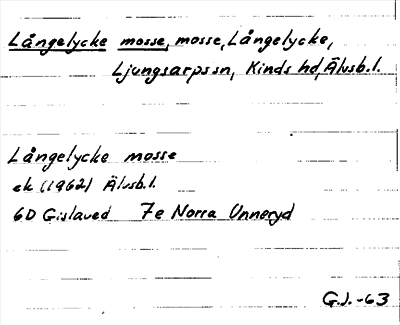 Långelycke mosse, mosse, Långelycke,
Ljungsarps sn, Kinds hd, Älvsb.l.
Långelycke mosse
ek (1962) Älvsb.l.
6D Gislaved 7e Norra Unneryd
G.J. -63